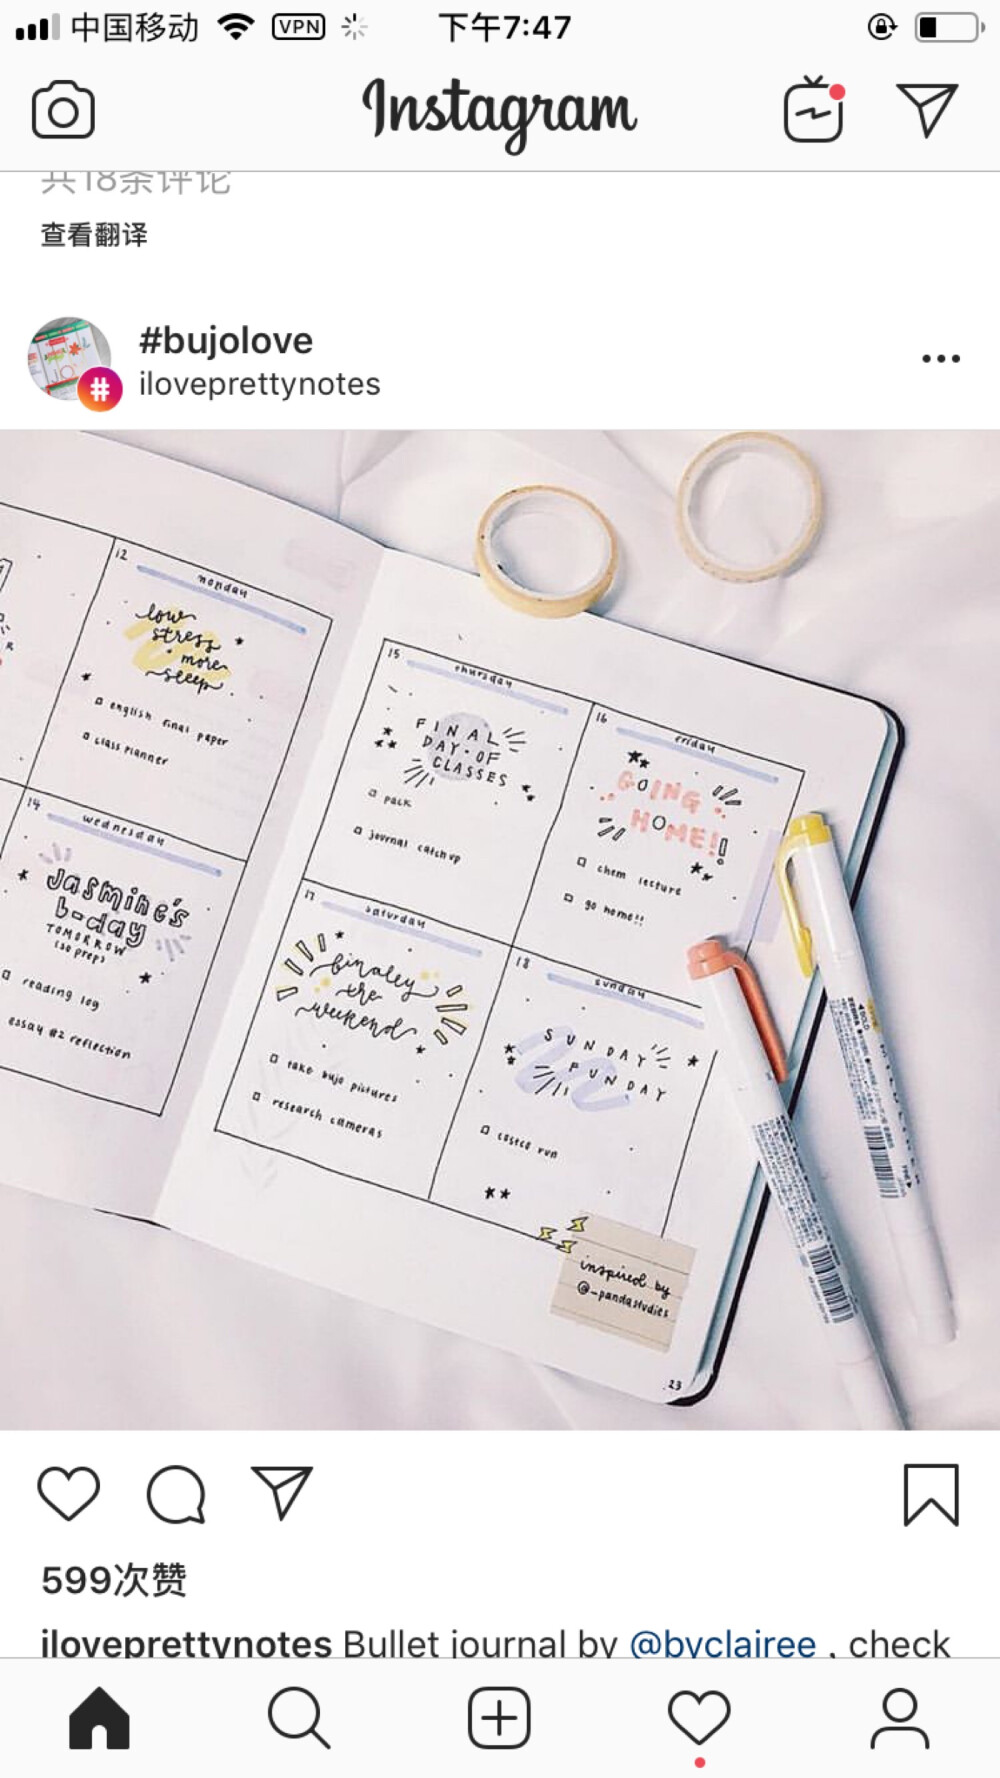 中国移动 VPN 下午7:47
Instagram
共18条评论
查看翻译
#bujolove
iloveprettynotes
12
monday
low
stress
more
sleep
english final paper
class planner
14
wednesday
Jasmine's
b-day
TOMORROW
(so prep)
reading log
essay #2 reflection
15
thursday
FINAL
DAY OF
CLASSES
pack
journal catch up
16
friday
GOING
HOME!!
chem lecture
go home!!
17
saturday
finaley
the
weekend
take bujo pictures
research cameras
18
sunday
SUNDAY
FUNDAY
costco run
inspired by
@-pandastudies
23
599次赞
iloveprettynotes Bullet journal by @byclairee , check